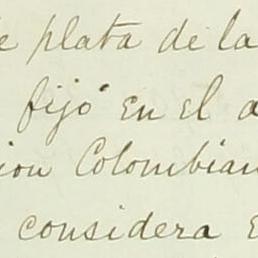 e plata de la
fijó en el a
ion Colombian
considera e